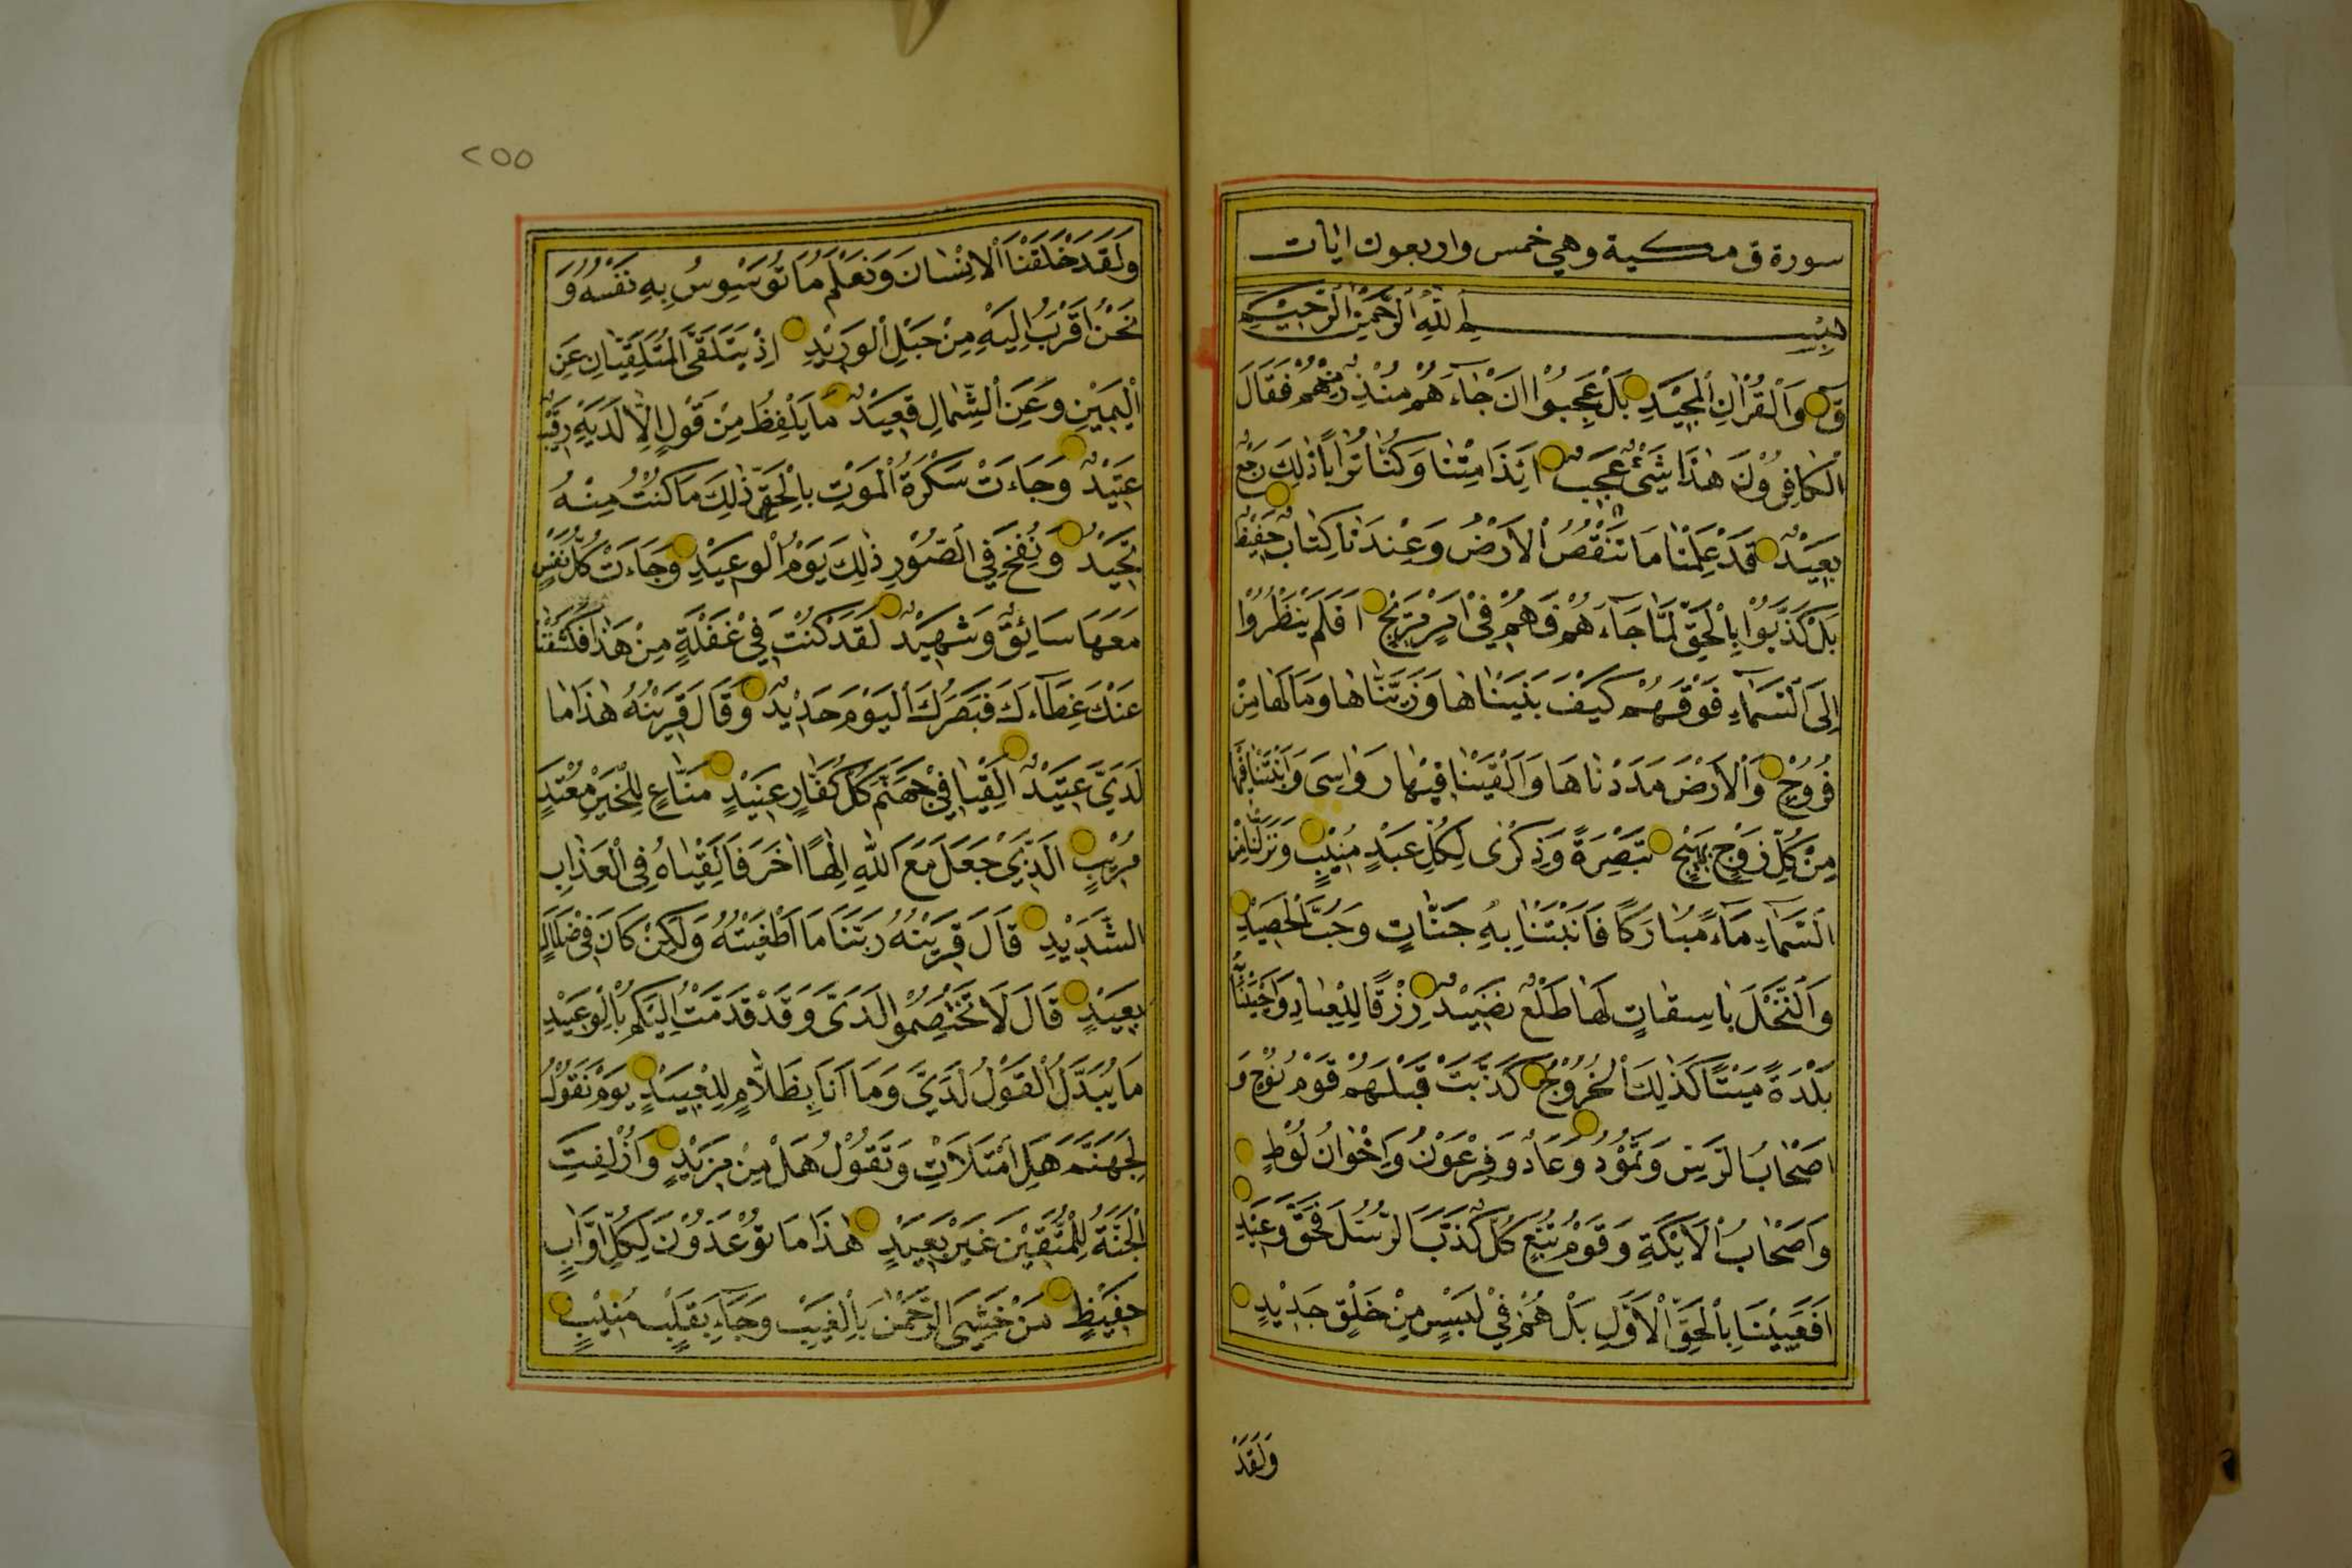 سورة ق مكية وهي خمس واربعون ايات
بِسْمِ اللهِ الرَّحْمٰنِ الرَّحِيمِ
قٓ وَالْقُرْاٰنِ الْمَجِيْدِ بَلْ عَجِبُوْا اَنْ جَٓاءَهُمْ مُنْذِرٌ مِنْهُمْ فَقَالَ
الْكَافِرُوْنَ هٰذَا شَيْئٌ عَجَبٌ ائِذَا مِتْنَا وَكُنَّا تُرَابًا ذٰلِكَ رَجْعٌ
بَعِيْدٌ قَدْ عَلِمْنَا مَا تَنْقُصُ الْاَرْضُ وَعِنْدَنَا كِتَابٌ حَفِيْظٌ
بَلْ كَذَّبُوْا بِالْحَقِّ لَمَّا جَٓاءَهُمْ فَهُمْ فِيْ اَمْرٍ مَرِيْجٍ اَفَلَمْ يَنْظُرُوْا
اِلَى السَّمَٓاءِ فَوْقَهُمْ كَيْفَ بَنَيْنَاهَا وَزَيَّنَّاهَا وَمَا لَهَا مِنْ
فُرُوْجٍ وَالْاَرْضَ مَدَدْنَاهَا وَاَلْقَيْنَا فِيْهَا رَوَاسِىَ وَاَنْبَتْنَا فِيْهَا
مِنْ كُلِّ زَوْجٍ بَهِيْجٍ تَبْصِرَةً وَذِكْرٰى لِكُلِّ عَبْدٍ مُنِيْبٍ وَنَزَّلْنَا مِنَ
السَّمَٓاءِ مَٓاءً مُبَارَكًا فَاَنْبَتْنَا بِهِ جَنَّاتٍ وَحَبَّ الْحَصِيْدِ
وَالنَّخْلَ بَاسِقَاتٍ لَهَا طَلْعٌ نَضِيْدٌ رِزْقًا لِلْعِبَادِ وَاَحْيَيْنَا
بَلْدَةً مَيْتًا كَذٰلِكَ الْخُرُوْجُ كَذَّبَتْ قَبْلَهُمْ قَوْمُ نُوْحٍ وَ
اَصْحَابُ الرَّسِّ وَثَمُوْدُ وَعَادٌ وَفِرْعَوْنُ وَاِخْوَانُ لُوْطٍ
وَاَصْحَابُ الْاَيْكَةِ وَقَوْمُ تُبَّعٍ كُلٌّ كَذَّبَ الرُّسُلَ فَحَقَّ وَعِيْدِ
اَفَعَيِيْنَا بِالْحَقِّ الْاَوَّلِ بَلْ هُمْ فِيْ لَبْسٍ مِنْ خَلْقٍ جَدِيْدٍ
وَلَقَدْ
٢٥٥
وَلَقَدْ خَلَقْنَا الْاِنْسَانَ وَنَعْلَمُ مَا تُوَسْوِسُ بِهِ نَفْسُهُ وَ
نَحْنُ اَقْرَبُ اِلَيْهِ مِنْ حَبْلِ الْوَرِيْدِ اِذْ يَتَلَقَّى الْمُتَلَقِّيَانِ عَنِ
الْيَمِيْنِ وَعَنِ الشِّمَالِ قَعِيْدٌ مَا يَلْفِظُ مِنْ قَوْلٍ اِلَّا لَدَيْهِ رَقِيْبٌ
عَتِيْدٌ وَجَاءَتْ سَكْرَةُ الْمَوْتِ بِالْحَقِّ ذٰلِكَ مَا كُنْتَ مِنْهُ
تَحِيْدُ وَنُفِخَ فِي الصُّوْرِ ذٰلِكَ يَوْمُ الْوَعِيْدِ وَجَاءَتْ كُلُّ نَفْسٍ
مَعَهَا سَائِقٌ وَشَهِيْدٌ لَقَدْ كُنْتَ فِيْ غَفْلَةٍ مِنْ هٰذَا فَكَشَفْنَا
عَنْكَ غِطَٓاءَكَ فَبَصَرُكَ الْيَوْمَ حَدِيْدٌ وَقَالَ قَرِيْنُهُ هٰذَا مَا
لَدَىَّ عَتِيْدٌ اَلْقِيَا فِيْ جَهَنَّمَ كُلَّ كَفَّارٍ عَنِيْدٍ مَنَّاعٍ لِلْخَيْرِ مُعْتَدٍ
مُرِيْبٍ الَّذِيْ جَعَلَ مَعَ اللهِ اِلٰهًا اٰخَرَ فَاَلْقِيَاهُ فِي الْعَذَابِ
الشَّدِيْدِ قَالَ قَرِيْنُهُ رَبَّنَا مَا اَطْغَيْتُهُ وَلٰكِنْ كَانَ فِي ضَلَالٍ
بَعِيْدٍ قَالَ لَا تَخْتَصِمُوا لَدَىَّ وَقَدْ قَدَّمْتُ اِلَيْكُمْ بِالْوَعِيْدِ
مَا يُبَدَّلُ الْقَوْلُ لَدَيَّ وَمَا اَنَا بِظَلَّامٍ لِلْعَبِيْدِ يَوْمَ نَقُوْلُ
لِجَهَنَّمَ هَلِ امْتَلَاْتِ وَتَقُوْلُ هَلْ مِنْ مَزِيْدٍ وَاُزْلِفَتِ
الْجَنَّةُ لِلْمُتَّقِيْنَ غَيْرَ بَعِيْدٍ هٰذَا مَا تُوْعَدُوْنَ لِكُلِّ اَوَّابٍ
حَفِيْظٍ مَنْ خَشِىَ الرَّحْمٰنَ بِالْغَيْبِ وَجَٓاءَ بِقَلْبٍ مُنِيْبٍ